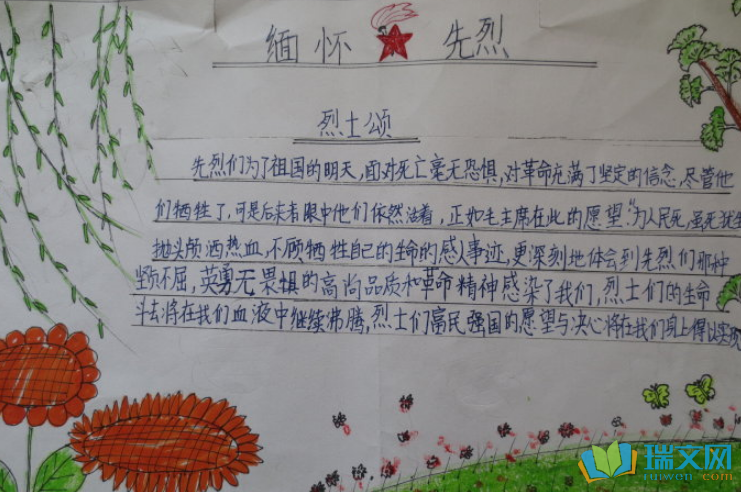 缅怀 先烈
烈士颂
先烈们为了祖国的明天,面对死亡毫无恐惧,对革命充满了坚定的信念,尽管他
们牺牲了,可是后来者眼中他们依然活着,正如毛主席在此的愿望:"为人民死,虽死犹生
抛头颅洒热血,不顾牺牲自己的生命的感人事迹,更深刻地体会到先烈们那种
坚贞不屈,英勇无畏惧的高尚品质和革命精神感染了我们,烈士们的生命
斗去将在我们血液中继续沸腾,烈士们富民强国的愿望与决心将在我们身上得以实现
瑞文网
ruiwen.com